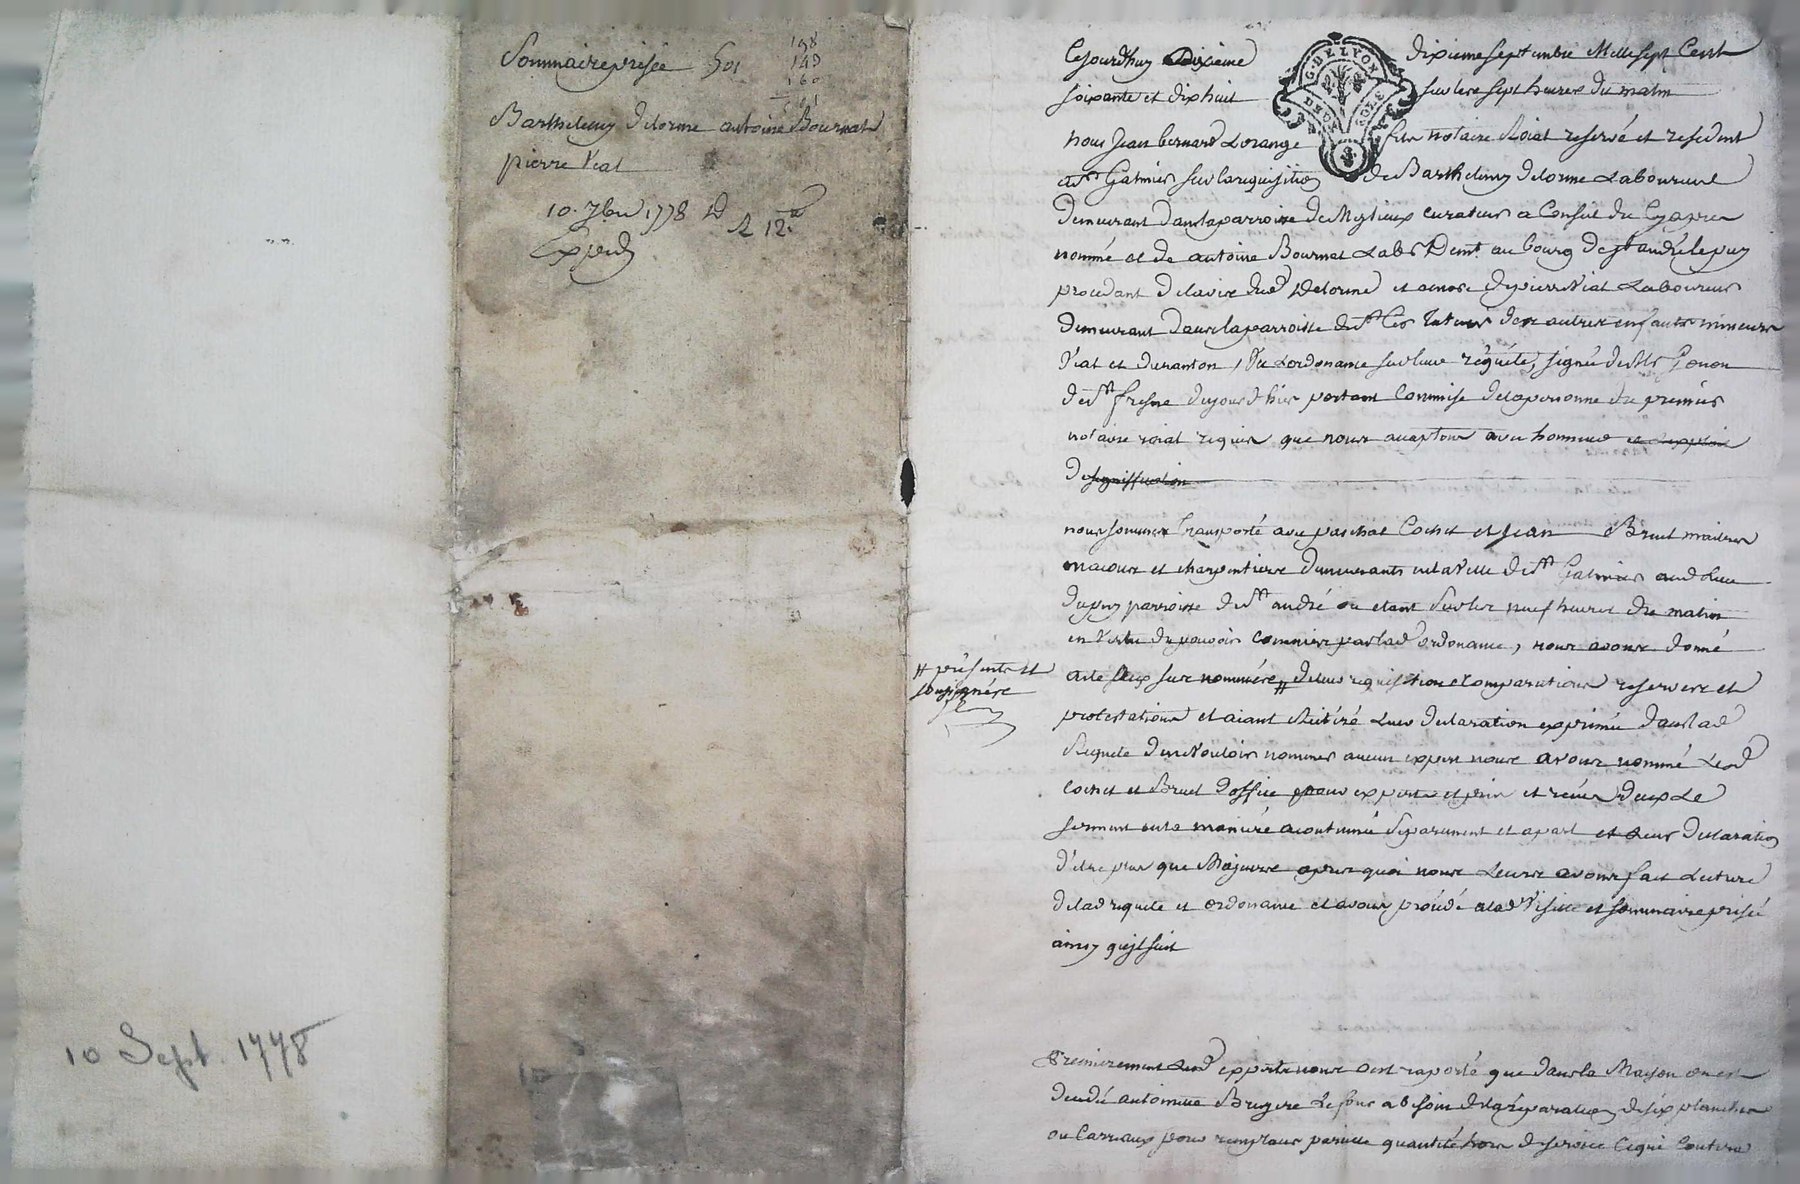 198
149
160
Sommaire prisée 501
Barthelemy delorme antoine Bournat
pierre Viat
10. 7bre 1778
12
Exped
10 Sept. 1778
Cejourdhuy Dixieme dixieme septembre Mille sept Cent
G. DE LYON
soixante et dix huit sur les sept heures du matin
nous Jean bernard Lorange notaire Roial reservé et resident
a St Galmier sur la requisition de Barthelemy delorme Laboureur
demeurant dans la parroisse de Mysieux curateur a Conseil du
nommé et de antoine Bournat Labr Demt au bourg de st andré le puy
procedant de lavis dud Delorme et encore de pierre Viat Laboureur
demeurant dans la parroisse de St tuteur des autres enfants mineurs
Viat et duranton, Vu Lordonance sur leur réquéte, signée de Mr Gonon
de St fresne dujourdhier portant Commise de la personne du premier
notaire roial requis que nous acceptons avec honneur
de signiffication
nous sommes transporté avec paschal Cochet et Jean Bruel maitres
macons et charpentiers demeurants en la Ville de St Galmier aud Lieu
dupuy parroisse de St andré ou etant sur les neuf heures du matin
en Vertu du pouvoir commis par lad ordonance, nous avons donné
# présents et
soussignés
acte aux sus nommés # de leur requisition Comparutions reserves et
protestations et aiant Reitéré Leur declaration exprimée dans lad
Requete de ne Vouloir nommer aucun expert nous avons nommé Lesd
Cochet et Bruel doffice pour experts et pris et recu deux Le
serment en la maniere acoutumée séparement et apart et Leur declaration
d'etre plus que Majeurs apres quoi nous Leurs avons fait Lecture
de lad requete et ordonance et avons procédé a lad Visitte et sommaire prisée
ainsy quil suit
Premierement Lesd experts nous ont raporté que dans la Maison
antoinette Bruyere Le four a besoin de la réparation de six planches
ou Carreaux pour remplacer pareille quantité hors de service Ce qui Coutera